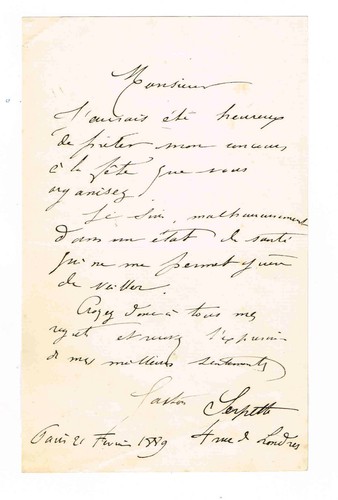 Monsieur
J'aurais été heureux
de prêter mon concours
à la fête que vous
organisez.
Je suis, malheureusement
dans un état de santé
qui ne me permet guère
de veiller.
Croyez donc à tous mes
regrets et recevez l'expression
de mes meilleurs sentiments
Gaston Serpette
Paris 21 Février 1889 4 rue de Londres